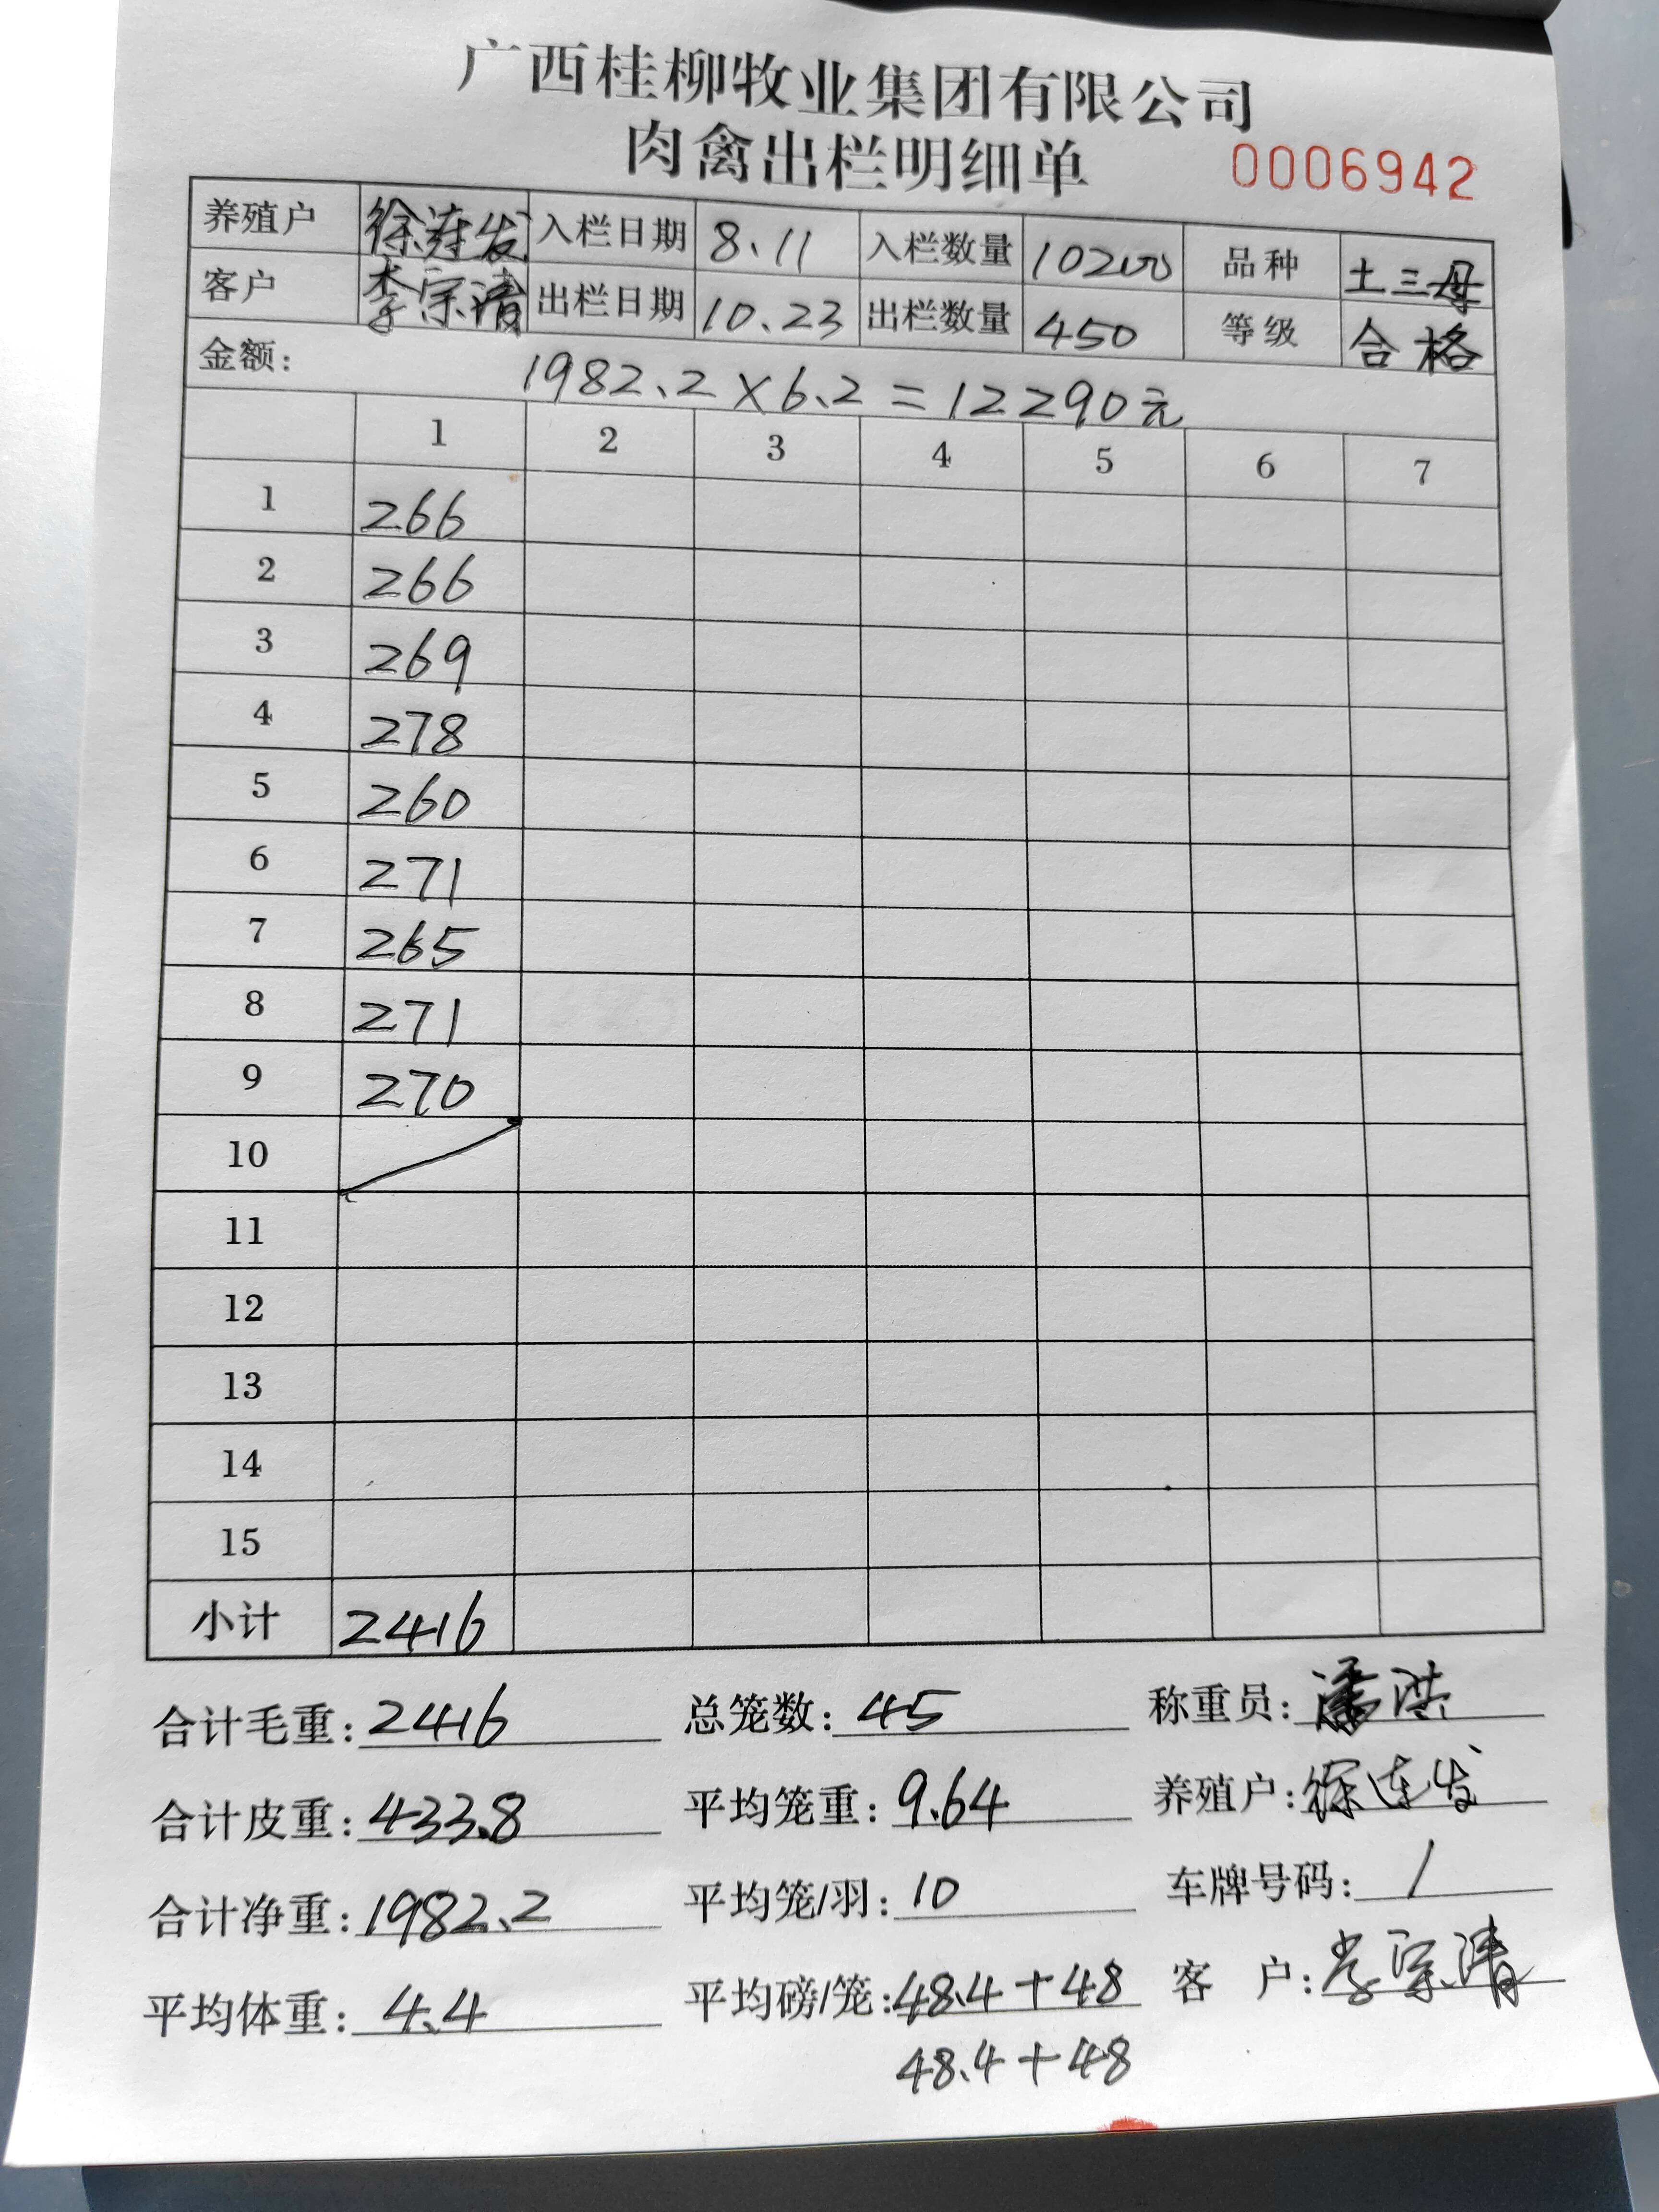 广西桂柳牧业集团有限公司
肉禽出栏明细单 0006942
养殖户 徐连发 入栏日期 8.11 入栏数量 10200 品种 土三母
客户 李宗清 出栏日期 10.23 出栏数量 450 等级 合格
金额: 1982.2×6.2=12290元
1 2 3 4 5 6 7
1 266
2 266
3 269
4 278
5 260
6 271
7 265
8 271
9 270
10
11
12
13
14
15
小计 2416
合计毛重: 2416 总笼数: 45 称重员: 潘洪
合计皮重: 433.8 平均笼重: 9.64 养殖户: 徐连发
合计净重: 1982.2 平均笼/羽: 10 车牌号码: /
平均体重: 4.4 平均磅/笼: 48.4+48 客 户: 李宗清
48.4+48